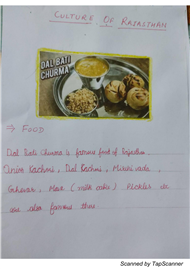 CULTURE OF RAJASTHAN
DAL BATI
CHURMA
→ FOOD
Dal Bati Churma is famous food of Rajasthan.
Onion Kachori, Dal Kachori, Mirchi vada,
Ghewar, Mawa (milk cake) Pickles etc
are also famous there
Scanned by TapScanner